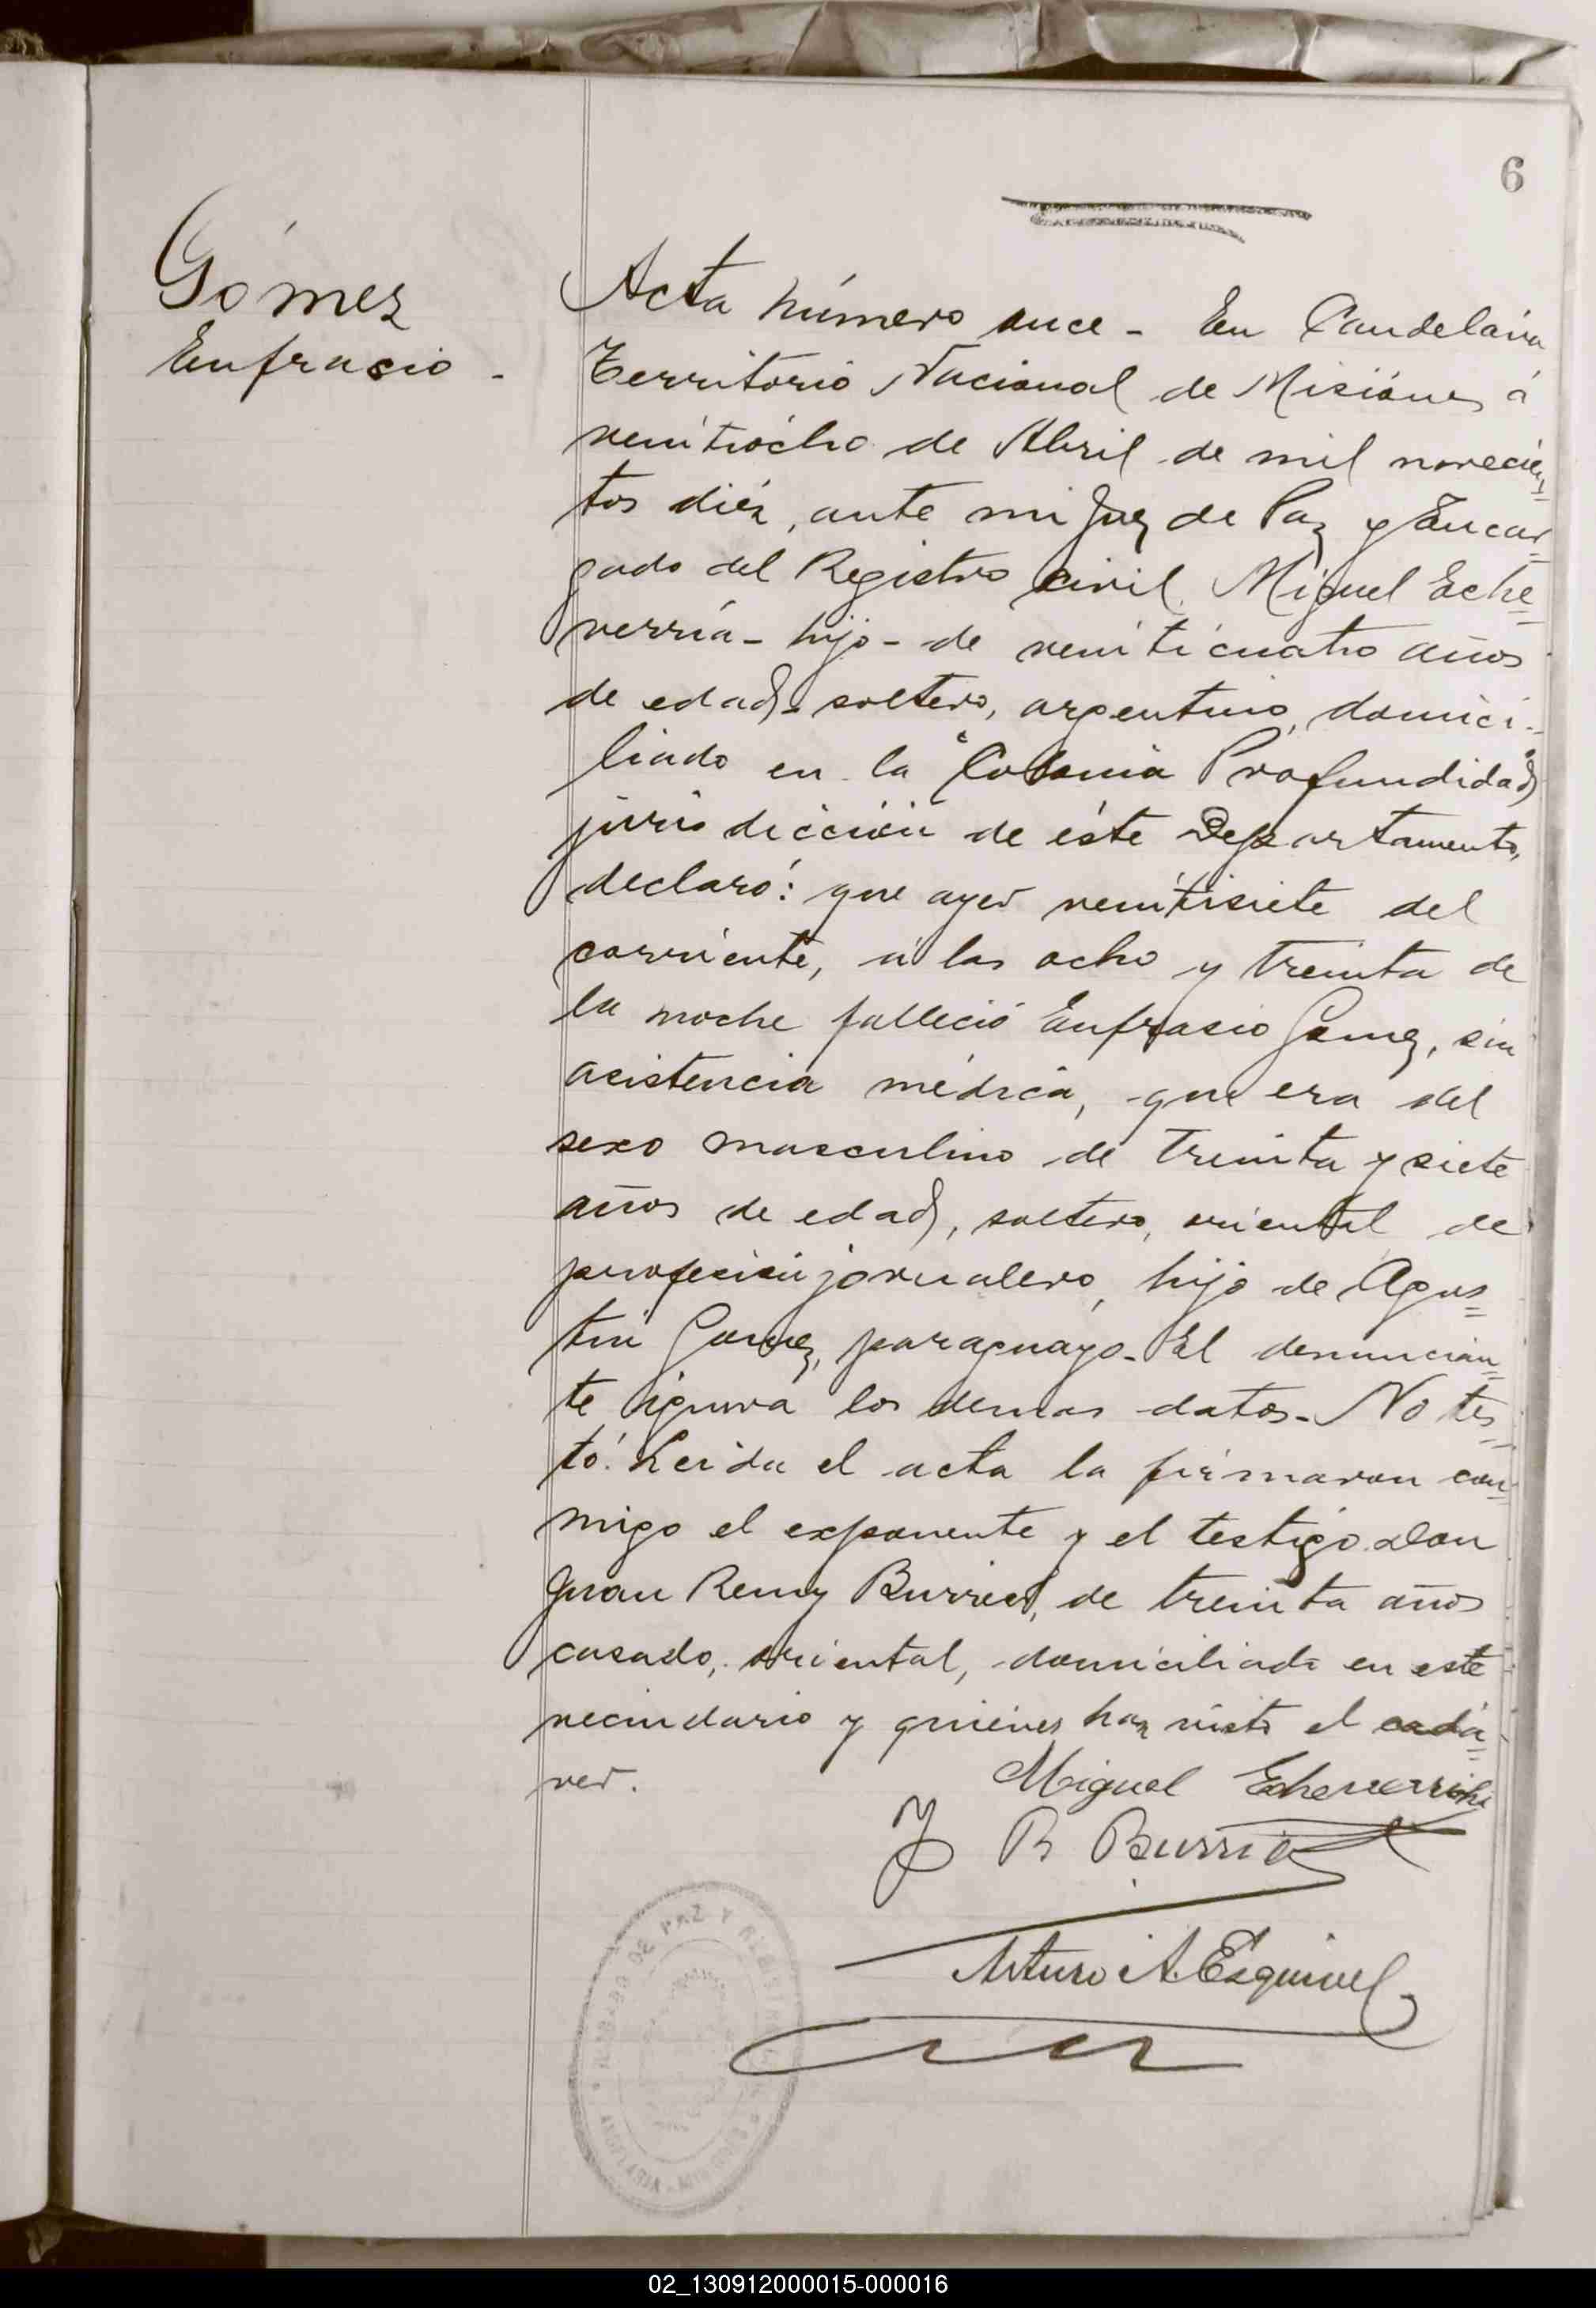 6
Gómez
Eufrasio -
Acta número once - En Candelaria
Territorio Nacional de Misiónes á
veintiocho de Abril de mil novecien=
tos diéz, ante mi Juez de Paz y Encar=
gado del Registro civil, Miguel Eche=
verría - hijo - de veinticuatro años
de edad - soltero, argentino, domici-
liado en la "Colonia Profundidad"
jurisdicción de éste Departamento,
declaró: que ayer veintisiete del
corriente, á las ocho y treinta de
la noche falleció Eufrasio Gomez, sin
asistencia médica, que era del
sexo masculino de treinta y siete
años de edad, soltero, oriental de
profesión jornalero, hijo de Agus=
tin Gomez, paraguayo - El denuncian=
te ignora los demas datos - No tes=
tó. Leida el acta la firmaron con=
migo el exponente y el testigo Don
Juan Remy Burriel, de treinta años
casado, oriental, domiciliado en este
vecindario y quiénes han visto el cadá=
ver.
Miguel Echeverria hi
J R Burriel
Arturo A. Esquivel
JUZGADO DE PAZ Y REGISTRO
CANDELARIA - MISIONES
02_130912000015-000016